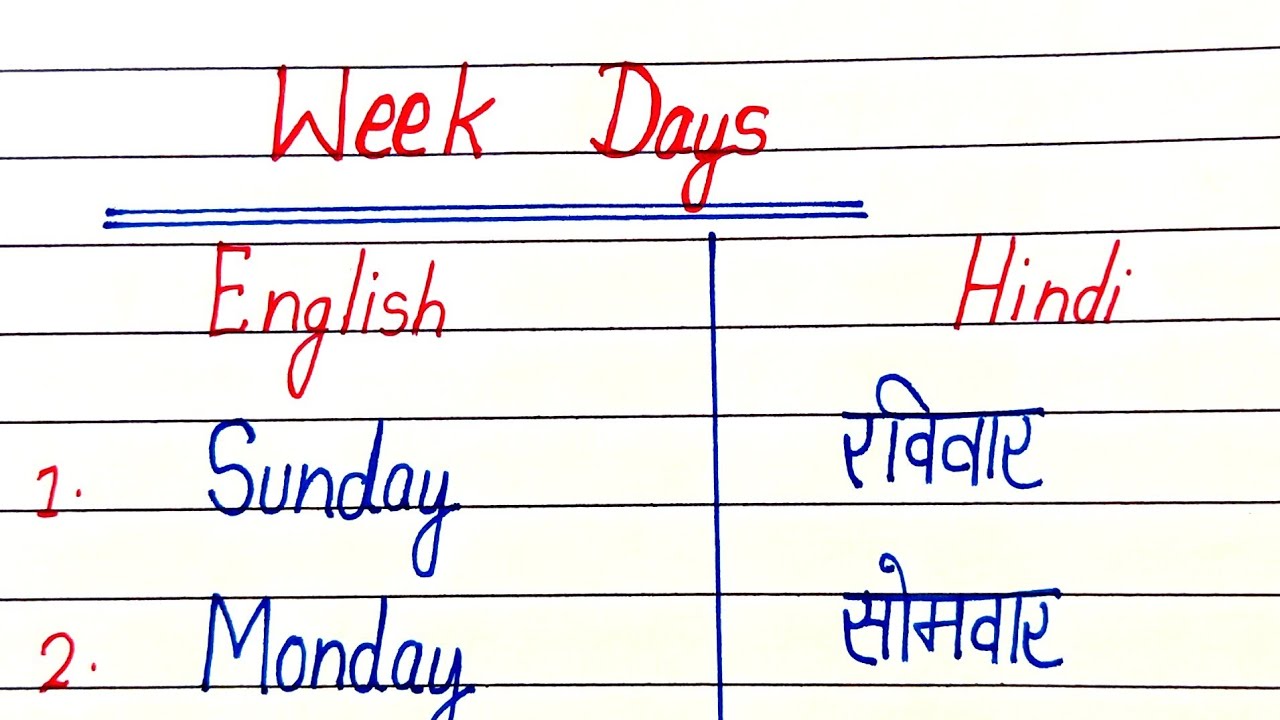 Week Days
English Hindi
1. Sunday रविवार
2. Monday सोमवार